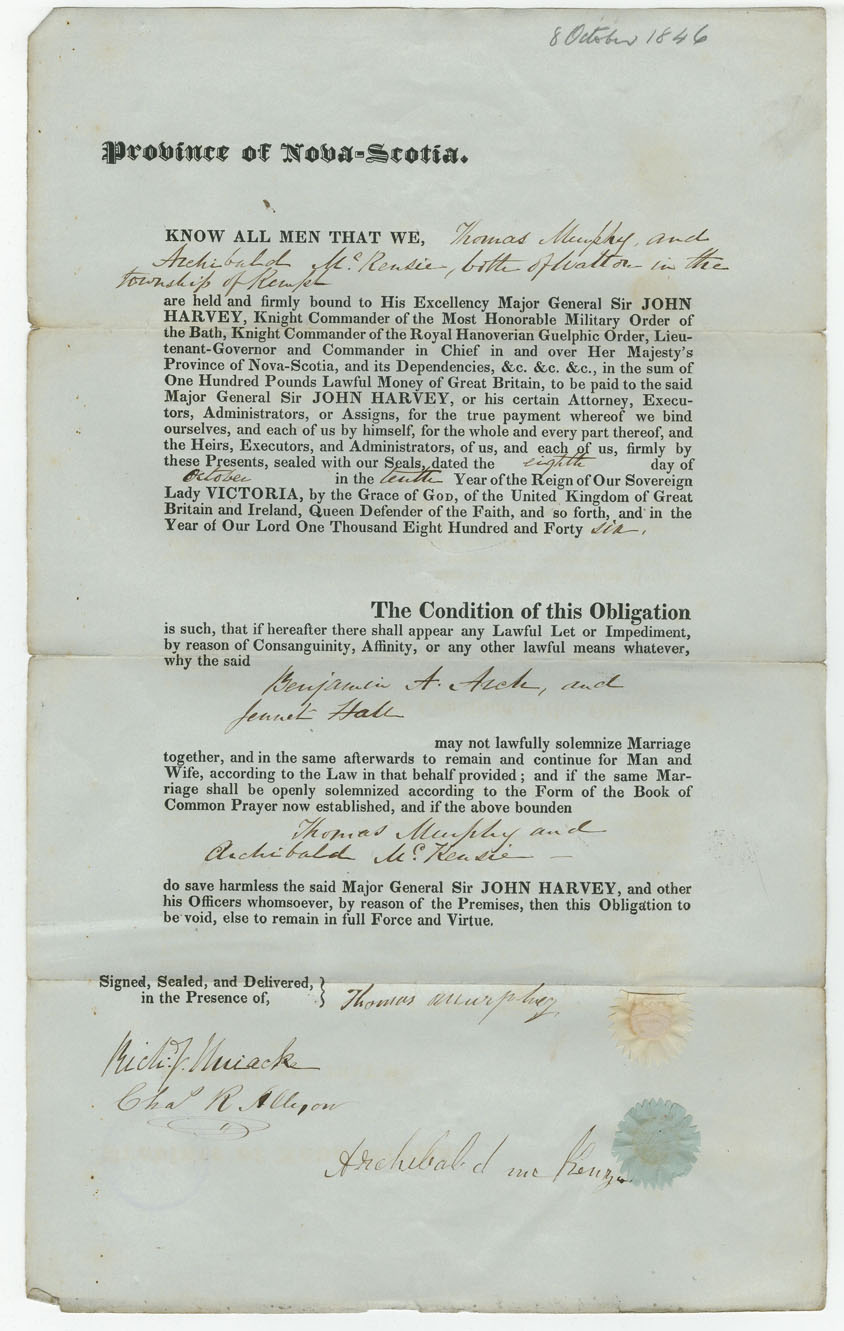 8 October 1846
Province of Nova-Scotia.
KNOW ALL MEN THAT WE, Thomas Murphy, and
Archibald Mc.Kensie, both of Walton in the
township of Kempt
are held and firmly bound to His Excellency Major General Sir JOHN
HARVEY, Knight Commander of the Most Honorable Military Order of
the Bath, Knight Commander of the Royal Hanoverian Guelphic Order, Lieu-
tenant-Governor and Commander in Chief in and over Her Majesty's
Province of Nova-Scotia, and its Dependencies, &c. &c. &c., in the sum of
One Hundred Pounds Lawful Money of Great Britain, to be paid to the said
Major General Sir JOHN HARVEY, or his certain Attorney, Execu-
tors, Administrators, or Assigns, for the true payment whereof we bind
ourselves, and each of us by himself, for the whole and every part thereof, and
the Heirs, Executors, and Administrators, of us, and each of us, firmly by
these Presents, sealed with our Seals, dated the eighth day of
October in the tenth Year of the Reign of Our Sovereign
Lady VICTORIA, by the Grace of GOD, of the United Kingdom of Great
Britain and Ireland, Queen Defender of the Faith, and so forth, and in the
Year of Our Lord One Thousand Eight Hundred and Forty six.
The Condition of this Obligation
is such, that if hereafter there shall appear any Lawful Let or Impediment,
by reason of Consanguinity, Affinity, or any other lawful means whatever,
why the said
Benjamin A. Arch, and
Jennet Hall
may not lawfully solemnize Marriage
together, and in the same afterwards to remain and continue for Man and
Wife, according to the Law in that behalf provided; and if the same Mar-
riage shall be openly solemnized according to the Form of the Book of
Common Prayer now established, and if the above bounden
Thomas Murphy and
Archibald Mc.Kensie —
do save harmless the said Major General Sir JOHN HARVEY, and other
his Officers whomsoever, by reason of the Premises, then this Obligation to
be void, else to remain in full Force and Virtue.
Signed, Sealed, and Delivered,
in the Presence of,
Thomas Murphey
Rich. J. Uniacke
Chas R. Allison
Archibald mc Kenzie